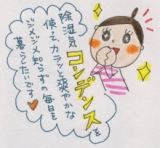 除湿気
コンデンスを
使ってカラッと爽やかな
ジメジメ知らずの毎日を
暮らしたいです♥